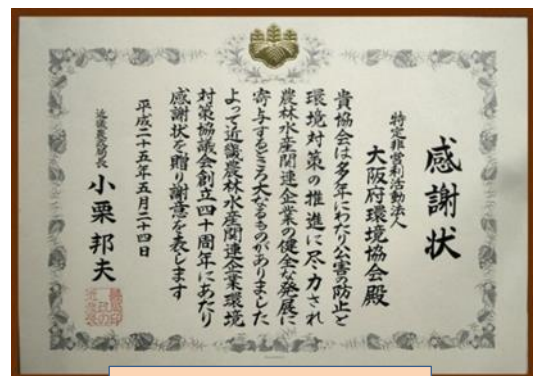 感謝状
特定非営利活動法人
大阪府環境協会殿
貴協会は多年にわたり公害の防止と
環境対策の推進に尽力され
農林水産関連企業の健全な発展に
寄与するところ大なるものがありました
よって近畿農林水産関連企業環境
対策協議会創立四十周年にあたり
感謝状を贈り謝意を表します
平成二十五年五月二十四日
近畿農政局長
小栗邦夫